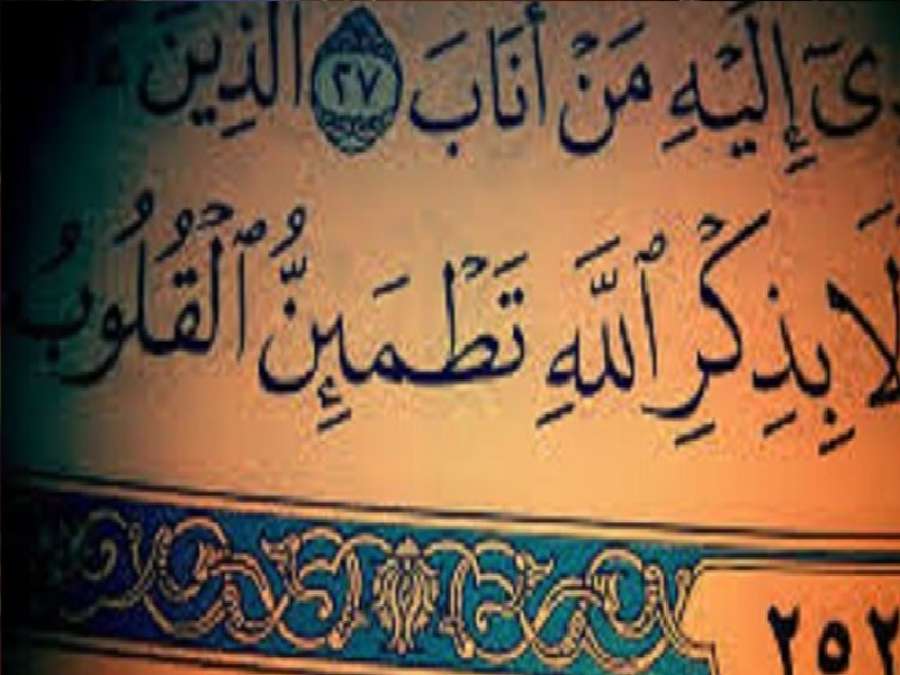 دِىٓ إِلَيْهِ مَنْ أَنَابَ ٢٧ ٱلَّذِينَ
أَلَا بِذِكْرِ ٱللَّهِ تَطْمَئِنُّ ٱلْقُلُوبُ
٢٥٢